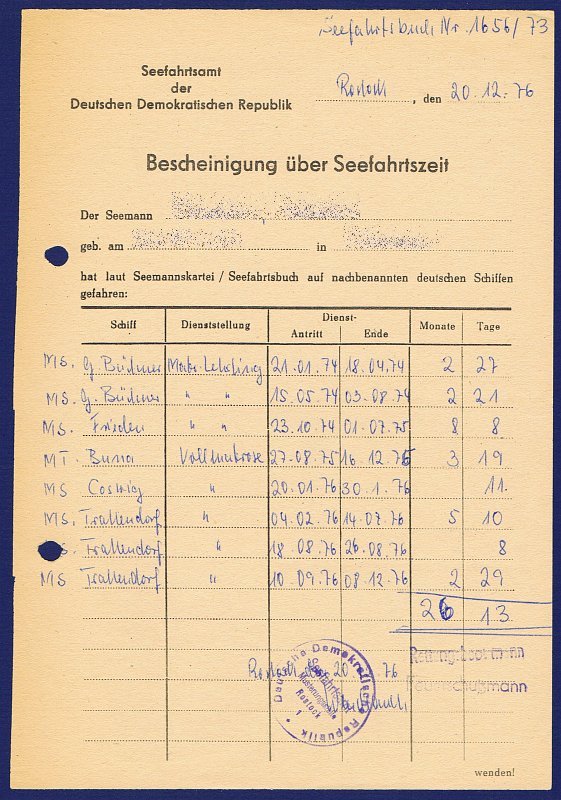 Seefahrtsbuch Nr. 1656/73
Seefahrtsamt
der
Deutschen Demokratischen Republik
Rostock, den 20.12.76
Bescheinigung über Seefahrtszeit
Der Seemann
geb. am in
hat laut Seemannskartei / Seefahrtsbuch auf nachbenannten deutschen Schiffen
gefahren:
Schiff Dienststellung Dienst- Monate Tage
Antritt Ende
MS. G. Büchner Matr. Lehrling 21.01.74 18.04.74 2 27
MS. G. Büchner " " 15.05.74 03.08.74 2 21
MS. Frieden " " 23.10.74 01.07.75 8 8
MT. Buna Vollmatrose 27.08.75 16.12.75 3 19
MS Coswig " 20.01.76 30.1.76 11.
MS. Trattendorf " 04.02.76 14.07.76 5 10
S. Trattendorf " 18.08.76 26.08.76 8
MS Trattendorf " 10.09.76 08.12.76 2 29
26 13
Rostock 20 76
Deutsche Demokratische Republik
Seefahrtsamt
Rostock
1
wenden!